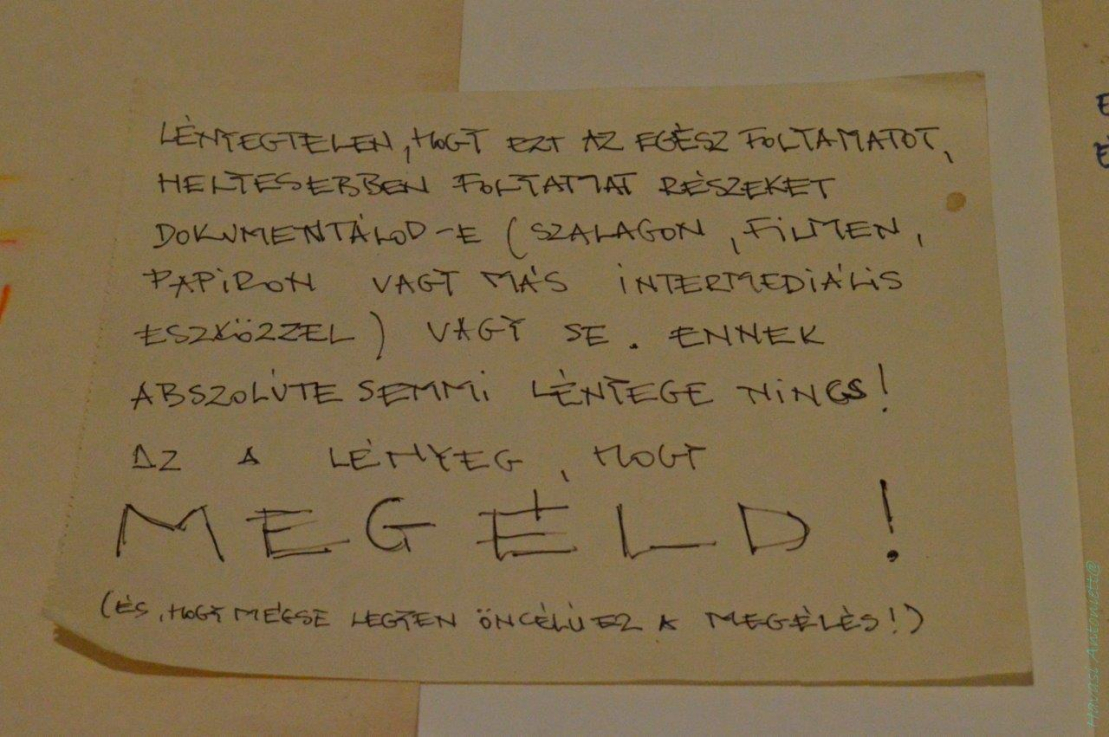 LÉNYEGTELEN, HOGY EZT AZ EGÉSZ FOLYAMATOT,
HELYESEBBEN FOLYAMAT RÉSZEKET
DOKUMENTÁLOD-E (SZALAGON, FILMEN,
PAPIRON VAGY MÁS INTERMEDIÁLIS
ESZKÖZZEL) VAGY SE. ENNEK
ABSZOLÚTE SEMMI LÉNYEGE NINCS!
AZ A LÉNYEG, HOGY
MEGÉLD!
(ÉS, HOGY MÉGSE LEGYEN ÖNCÉLÚ EZ A MEGÉLÉS!)